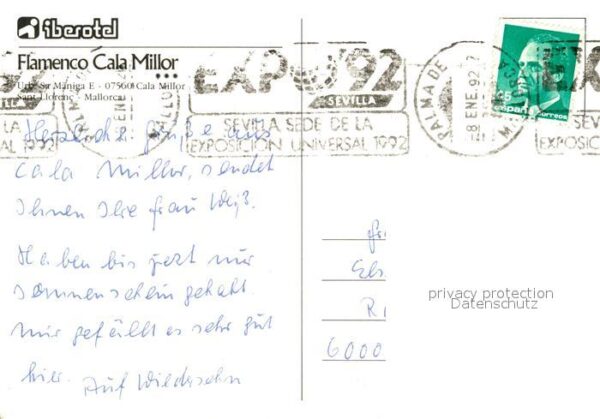 iberotel
Flamenco Cala Millor
Urb. Sa Màniga E - 07560 Cala Millor
Sant Llorenç - Mallorca
EXPO'92
SEVILLA
SEVILLA SEDE DE LA
EXPOSICION UNIVERSAL 1992
PALMA DE
8 ENE 92
45
españa
correos
EX
SEV
EXPOSIC
AL 1992
Herzliche Grüße aus
Cala Millor, sendet
Ihnen Ihre Frau Weiß.
Haben bis jetzt nur
Sonnenschein gehabt.
Mir gefällt es sehr gut
hier. Auf Wiedersehn
Fr.
Els
R
6000
privacy protection
Datenschutz